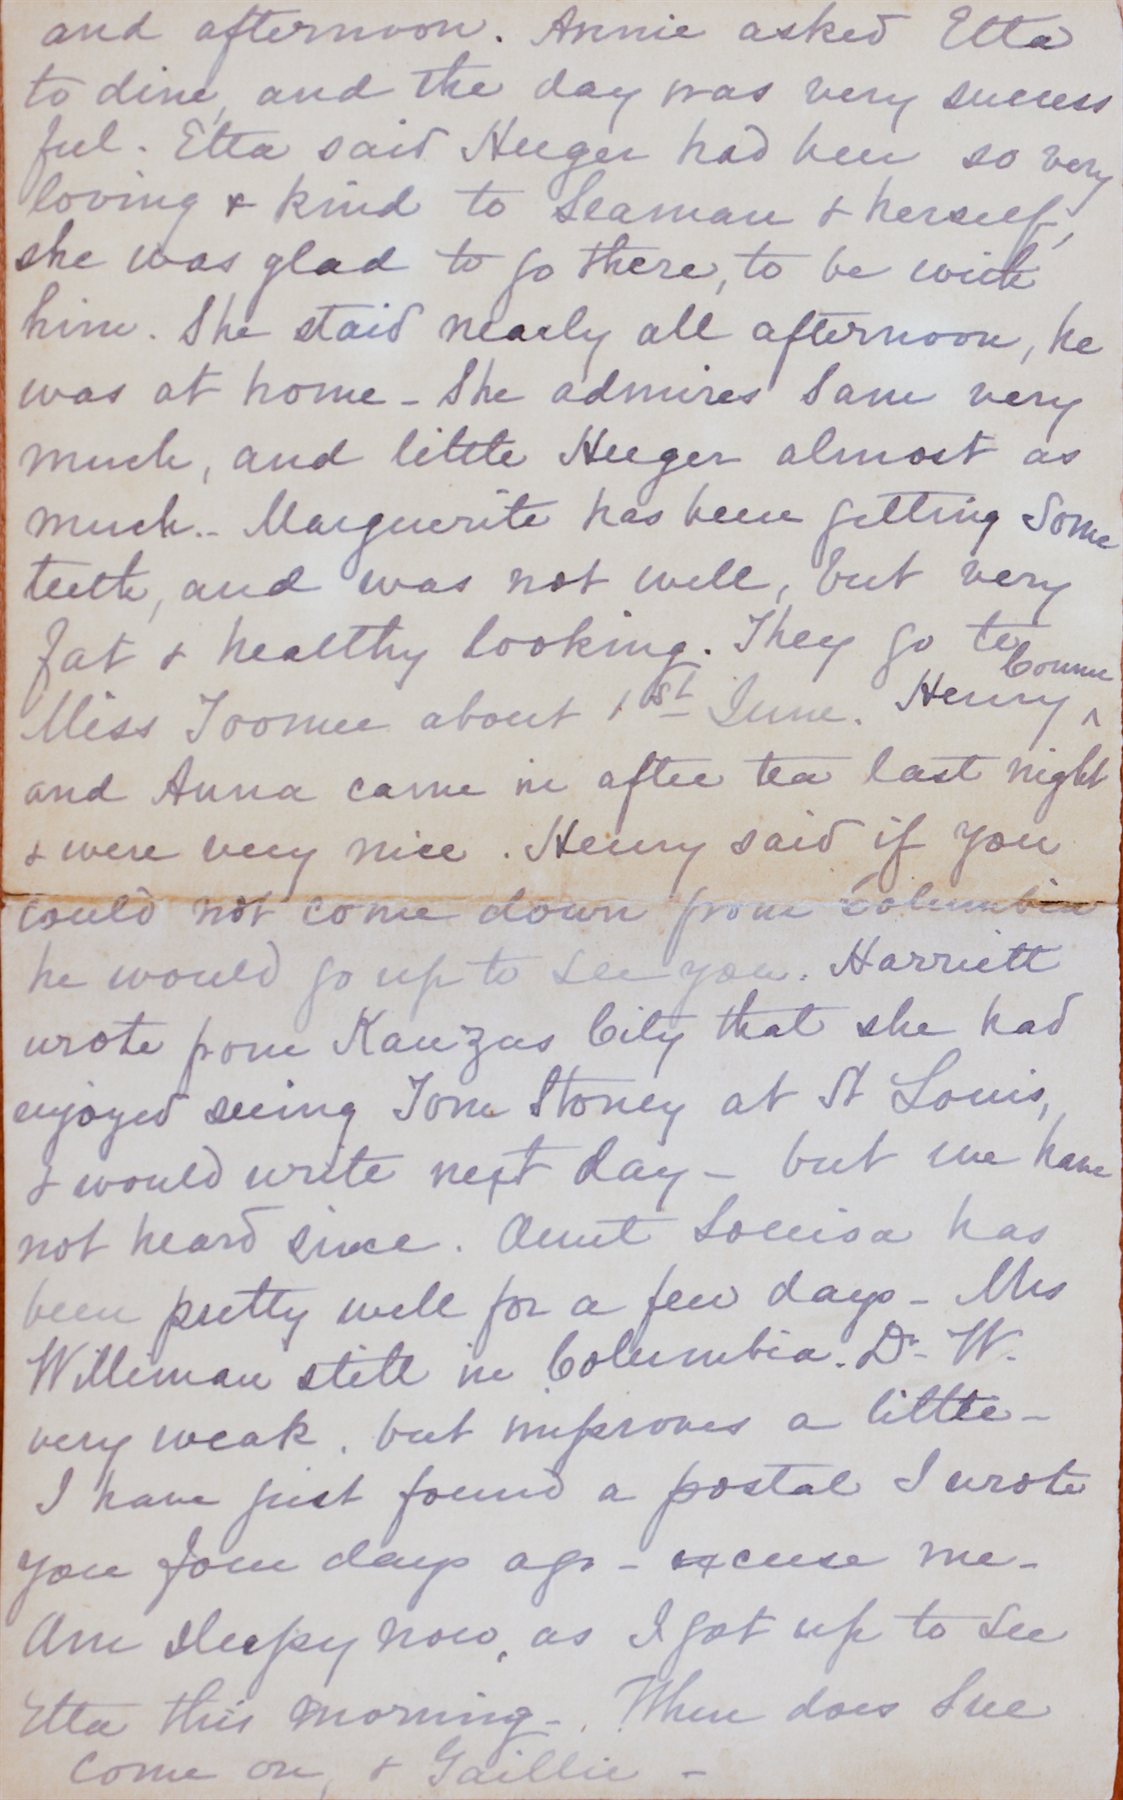 and afternoon. Annie asked Etta
to dine, and the day was very success
ful. Etta said Huger had been so very
loving & kind to Seaman & herself,
she was glad to go there, to be with
him. She staid nearly all afternoon, he
was at home - She admires Sam very
much, and little Huger almost as
much.- Marguerite has been getting some
teeth, and was not well, but very
fat & healthy looking. They go to
Connie
Miss Toomer about 1st June. Henry ^
and Anna came in after tea last night
& were very nice. Henry said if you
could not come down from Columbia
he would go up to see you. Harriett
wrote from Kanzas City that she had
enjoyed seeing Tom Stoney at St Louis,
& would write next day - but we have
not heard since. Aunt Louisa has
been pretty well for a few days - Mrs
Williman still in Columbia. Dr. W.
very weak, but improves a little -
I have just found a postal I wrote
you four days ago - excuse me -
Am sleepy now, as I got up to see
Etta this morning -. When does Sue
come on, & Gaillie -